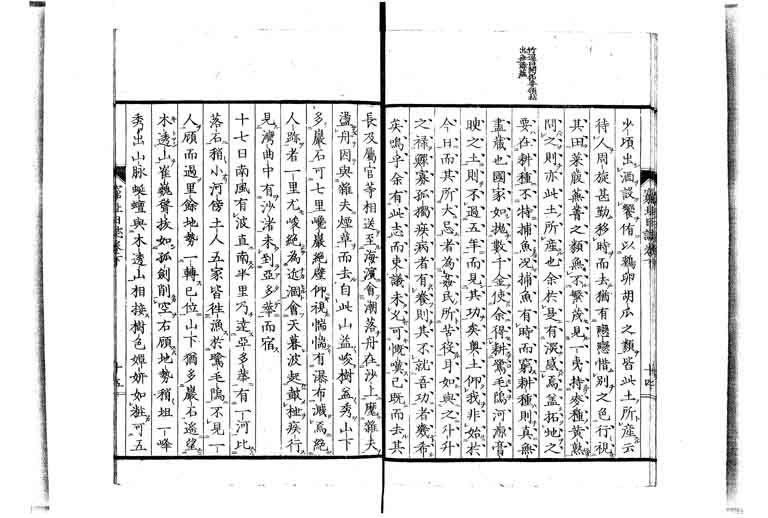 少頃出酒設饗侑以鷄卵胡瓜之類皆此土所産云
待人周旋甚勤移時而去猶有戀戀惜別之色行視
其田萊菔蕪菁之類無不繁茂見一夷持麥種黄熟
問之則亦此土所産也余於是有深感焉盖拓地之
要在耕種不特捕魚況捕魚有時而窮耕種則真無
盡藏也國家如抛數千金使余得耕鷺毛隝河源膏
腴之土則不過五年而見其功矣奥土仰我非始於
今日而其所大忌者為姦民所苦役月如與之斗升
之禄鰥寡孤獨疾病者有養則其不就吾功者幾希
矣嗚乎余有此志而東議未乂可慨嘆已既而去其
長及屬官等相送至海濱會潮落舟在沙上麾雜夫
盪舟因與雜夫煙草而去自此山益峻樹益秀山下
多巖石可七里巉巖絶壁仰視惴惴有瀑布濺焉絶
人跡者一里尤峻絶為近涸會天暮波起鼓枻疾行
見灣曲中有沙渚未到亞多華而宿
十七日南風有波直南半里乃達亞多華有一河比
落石稍小河傍土人五家皆徃漁於鷺毛隝不見一
人頋而過里餘地勢一轉已位山下爾多巖石遥望
木透山崔巍聳拔如孤劍削空右頋地勢稍坦一峰
秀出山脉蜒蟺與木透山相接樹色嬋妍如粧可五